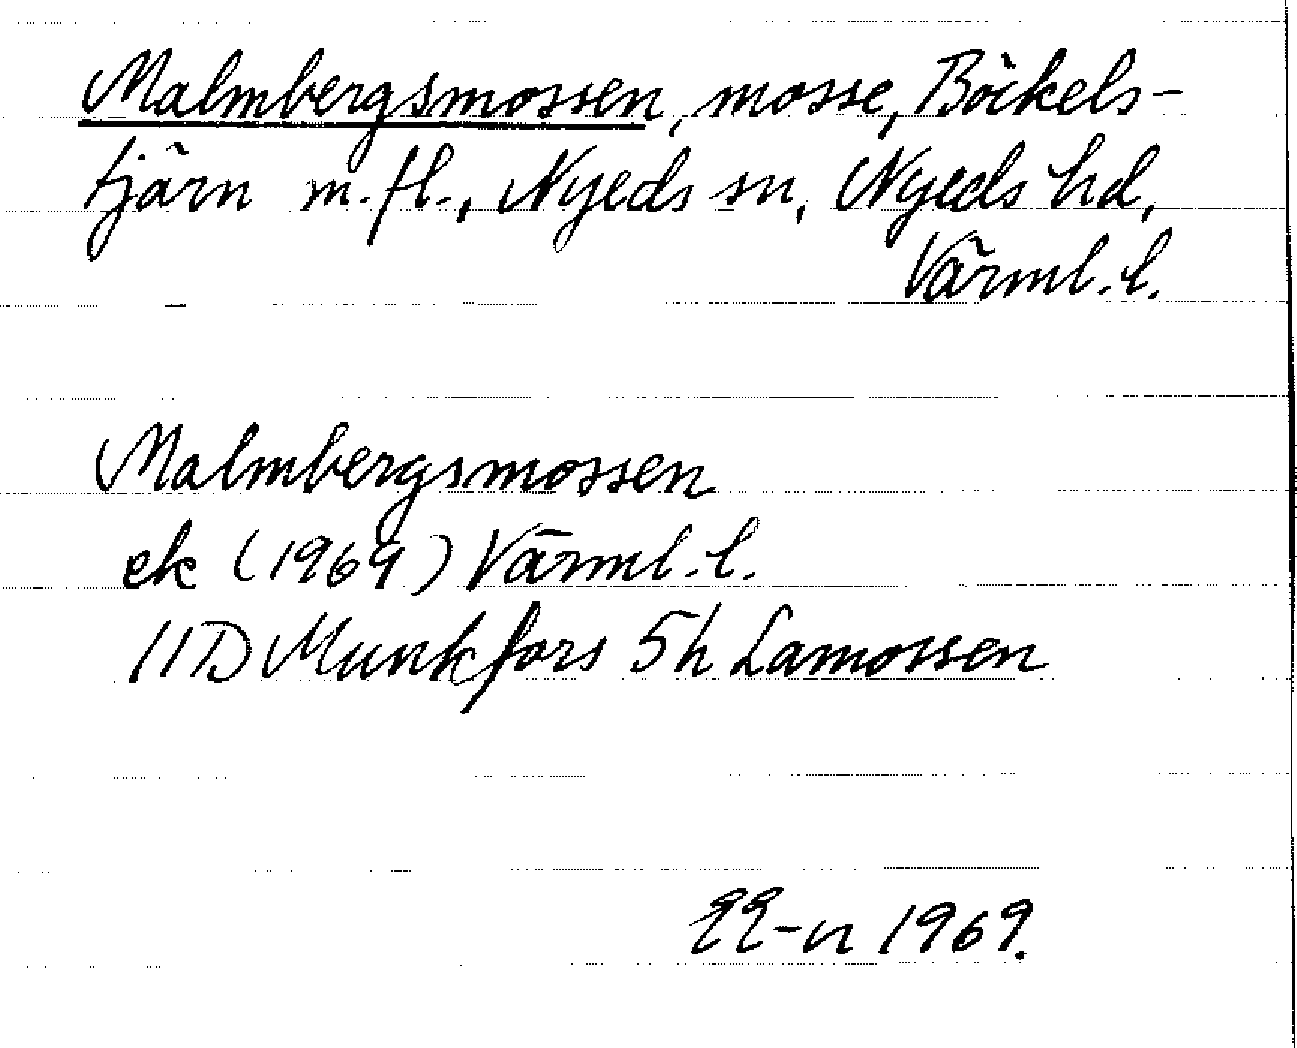 Malmbergsmossen, mosse, Böckels-
tjärn m.fl., Nyeds sn, Nyeds hd,
Värml. l.
Malmbergsmossen
ek (1969) Värml. l.
11D Munkfors 5h Lamossen
EE-n 1969.